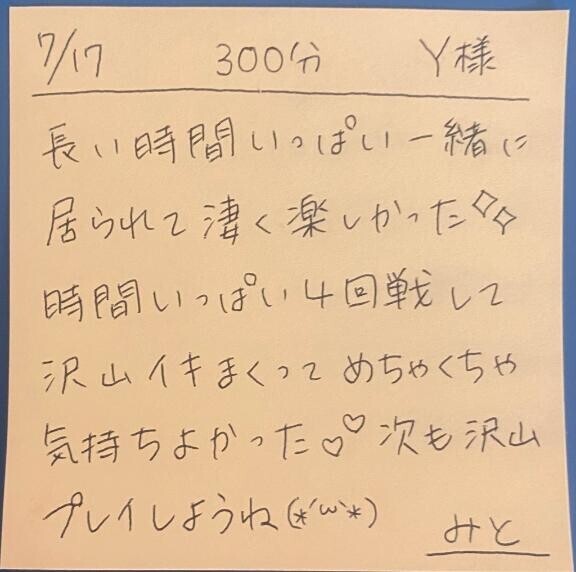 7/17 300分 Y様
長い時間いっぱい一緒に
居られて凄く楽しかった✧✧
時間いっぱい4回戦して
沢山イキまくってめちゃくちゃ
気持ちよかった♡♡次も沢山
プレイしようね(*´ω`*)
みと